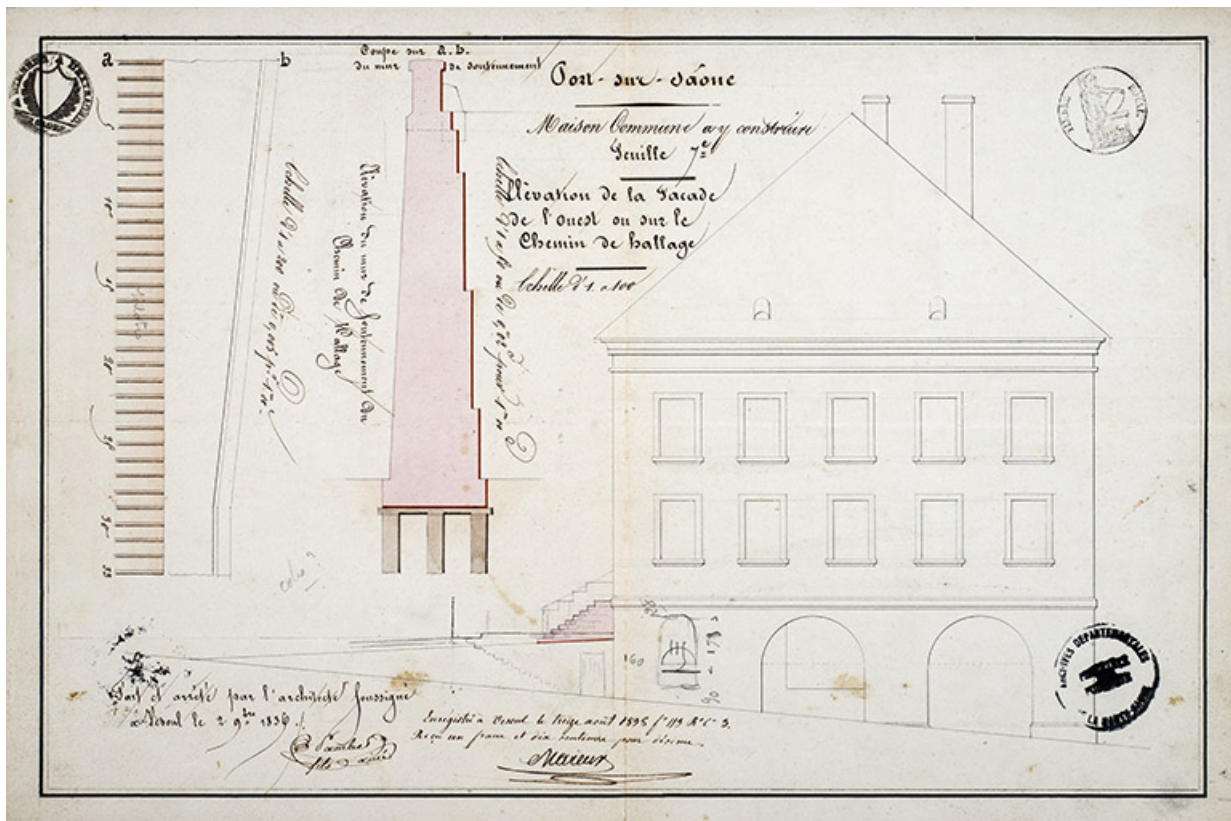 a
b
Coupe sur a. b.
du mur de soutennement
Port-sur-Saône
Maison Commune a y construire
Feuille 7e
Elévation de la Facade
de l'ouest ou sur le
Chemin de hallage
Echelle d'1 a 100
Elévation du mur de soutennement du
Chemin de hallage
Echelle d'1 a 200 ou de 0,005 pr 1m
Echelle d'1 a 50 ou de 0,02 pour 1m
5
10
15
20
30
33
160
90
178
Fait et arrêté par l'architecte soussigné
a Vesoul le 2 9bre 1836
fils ainé
Enregistré a Vesoul le treize août 1838 fo 119 Ro C 3.
Reçu un franc et dix centimes pour décime.
TIMBRE ROYAL
ARCHIVES DEPARTEMENTALES
LA HAUTE-SAONE